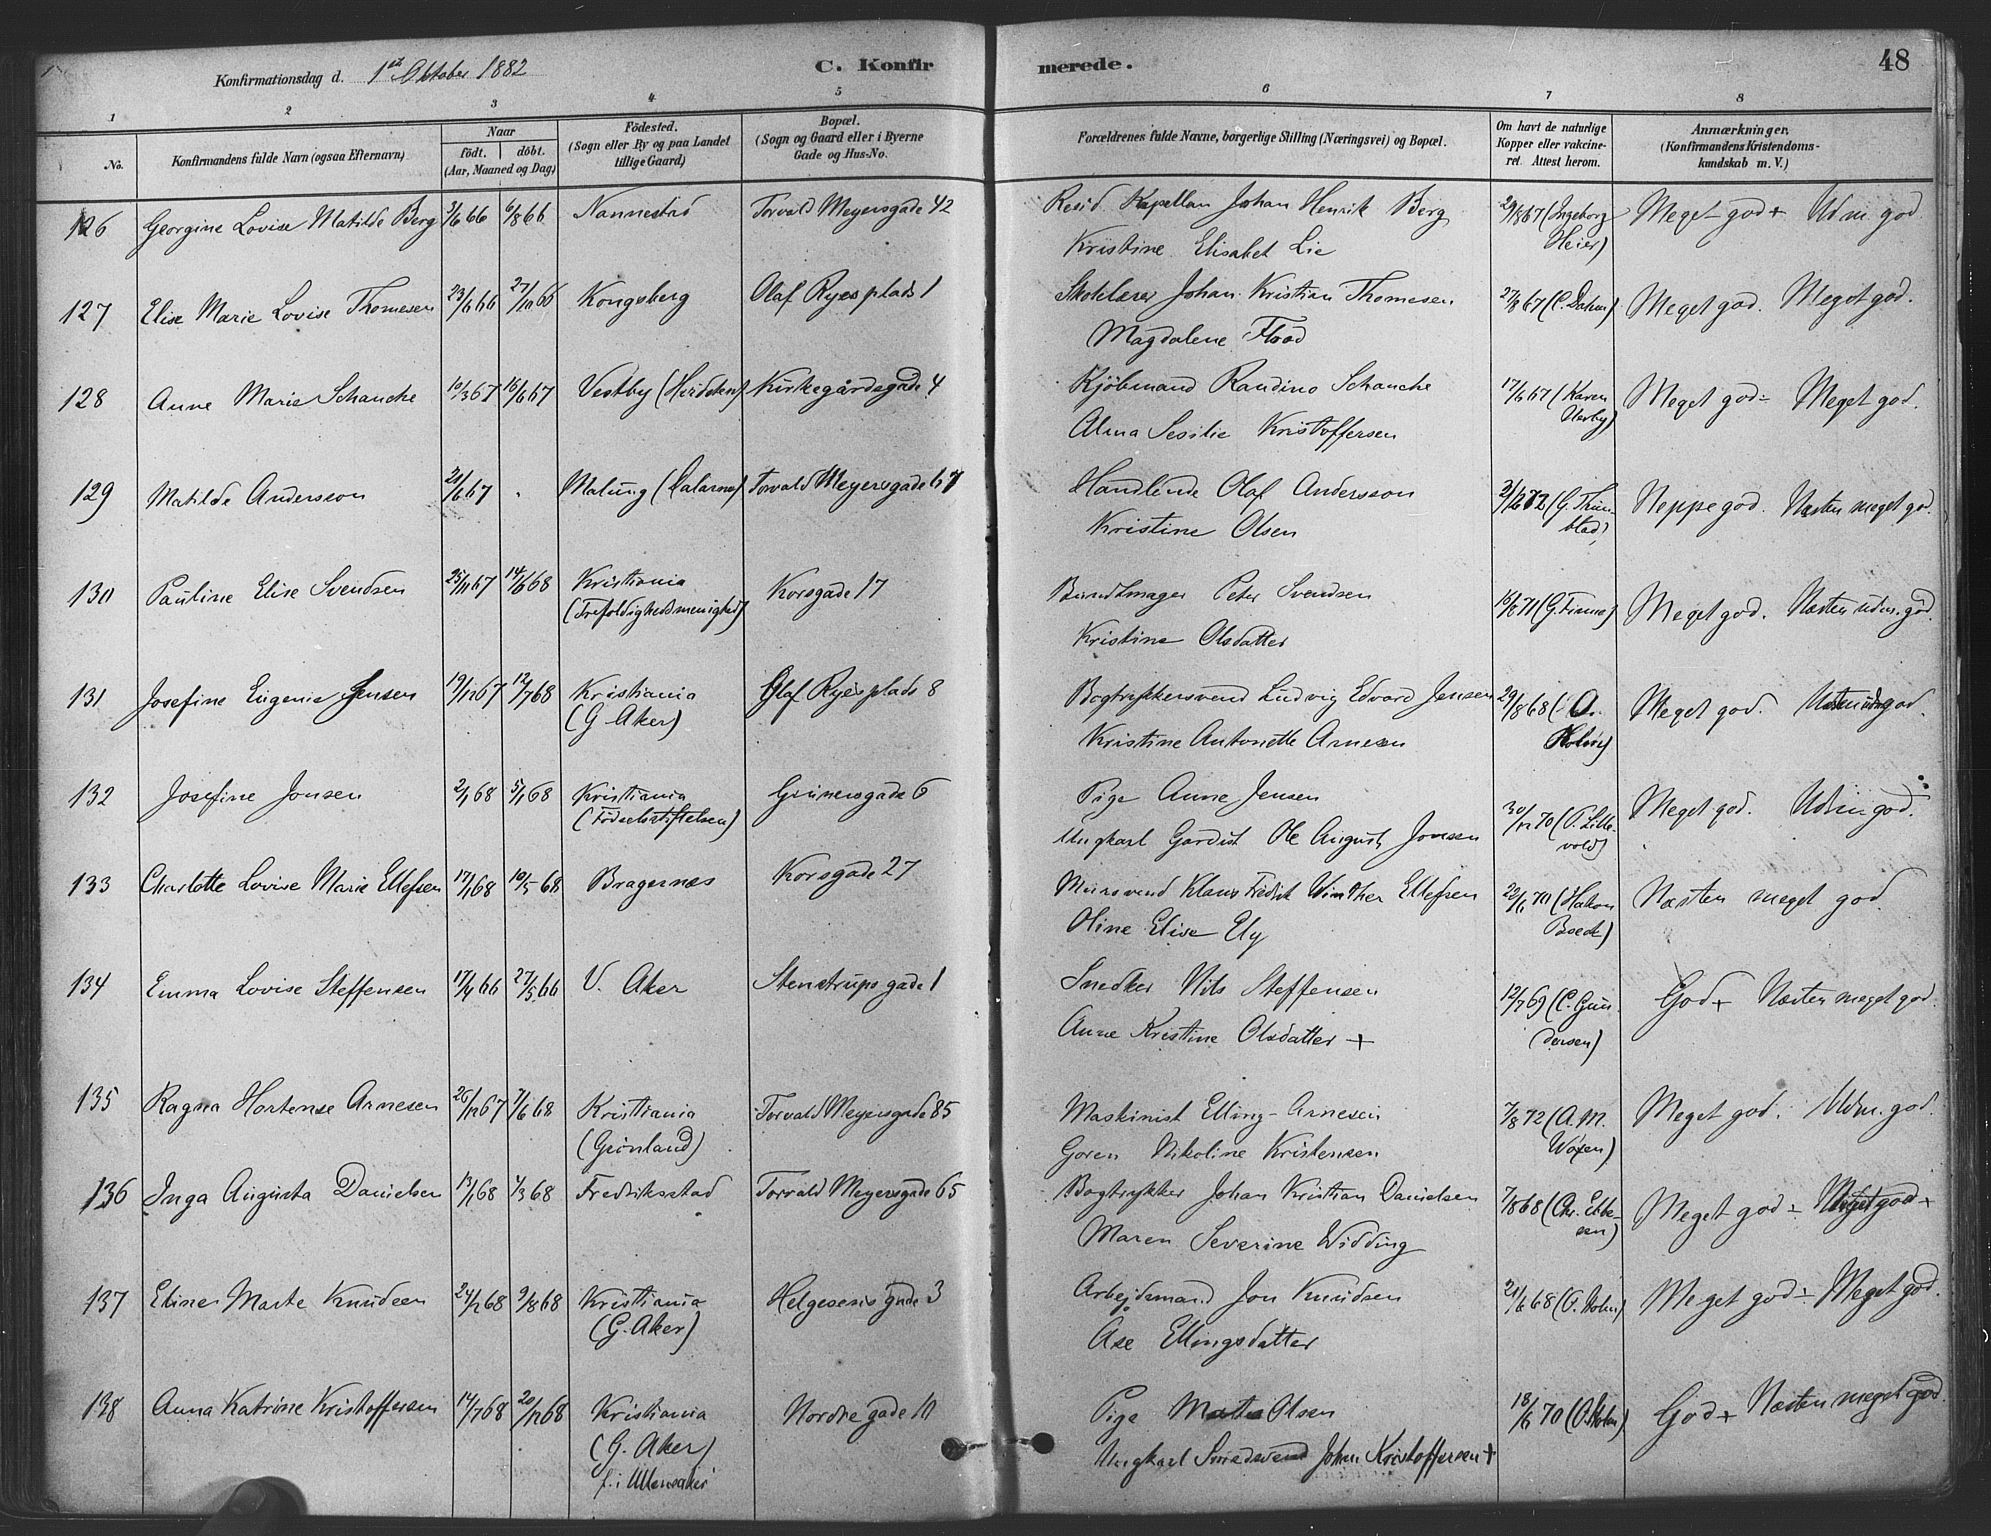 Konfirmationsdag d. 1ste Oktober 1882
C. Konfirmerede.
48
1 2 3 4 5 6 7 8
No.
Konfirmandens fulde Navn (ogsaa Efternavn)
Naar
födt. döbt.
(Aar, Maaned og Dag)
Födested.
(Sogn eller By og paa Landet
tillige Gaard)
Bopæl.
(Sogn og Gaard eller i Byerne
Gade og Hus-No.
Forældrenes fulde Navne, borgerlige Stilling (Næringsvei) og Bopæl.
Om havt de naturlige
Kopper eller vakcine-
ret. Attest herom.
Anmærkninger.
(Konfirmandens Kristendoms-
kundskab m. V.)
126 Georgine Lovise Matilde Berg 3/6 66 6/8 66 Nannestad Torvald Meyersgade 42 Resid. Kapellan Johan Henrik Berg 29/8 67 (Ingeborg Meget god + Udm. god
Kristine Elisabet Lie Heier)
127 Elise Marie Lovise Thomesen 23/6 66 27/10 66 Kongsberg Olaf Ryes plads 1 Skolelærer Johan Kristian Thomesen 27/8 67 (C. Dahm) Meget god. Meget god.
Magdalene Flood
128 Anne Marie Schanche 10/3 67 16/6 67 Vestby Kirkegårdsgade 4 Kjöbmand Randino Schanche 17/6 67 (Karen Meget god ÷ Meget god.
Alma Sesilie Kristoffersen
129 Matilde Andersson 21/6 67 Malung (Dalarne) Torvald Meyersgade 67 Handlende Olaf Andersson Neppe god. Næsten meget god.
Kristine Olsen
130 Pauline Elise Svendsen 25/11 67 14/6 68 Kristiania Korsgade 17 Bundtmager Peter Svendsen Meget god. Næsten udm. god.
(Trefoldighedsmenighed) Kristine Olsdatter
131 Josefine Eugenie Jensen 19/12 67 12/7 68 Kristiania Olaf Ryes plads 8 Bogtrykkersvend Ludvig Edvard Jensen 29/8 68 (O. Meget god. god.
(G. Aker) Kristine Antonette Arnesen Holm)
132 Josefine Jonsen 2/1 68 5/1 68 Kristiania Grünersgade 6 Pige Anne Jensen Meget god. Udm god.
(Födselsstiftelsen) Ungkarl Gardist Ole August Jonsen 30/12 70 (O. Lille-
vold)
133 Charlotte Lovise Marie Ellefsen 17/1 68 10/5 68 Bragernes Korsgade 27 Mursvend Klaus Fredrik Winther Ellefsen 22/6 70 (Hakon Næsten meget god
Oline Elise Ely Boeck)
134 Emma Lovise Steffensen 17/4 66 27/5 66 V. Aker Stenstrups gade 1 Snedker Nils Steffensen 12/7 69 (C. Gun- God + Næsten meget god.
Anne Kristine Olsdatter + dersen)
135 Ragna Hortense Arnesen 26/12 67 7/6 68 Kristiania Torvald Meyersgade 85 Maskinist Elling Arnesen 7/8 72 (A. M. Meget god. Udm. god.
(Grönland) Goren Nikoline Kristensen Woxen)
136 Inga Augusta Danielsen 13/1 68 1/3 68 Fredriksstad Torvald Meyersgade 65 Bogtrykker Johan Kristian Danielsen 7/8 68 (Chr. Ebbe- Meget god ÷ Meget god +
Maren Severine Widding sen)
137 Eline Marte Knudsen 24/2 68 9/8 68 Kristiania Helgesens gade 3 Arbeidsmand Jon Knudsen 21/6 68 (O. Holm) Meget god ÷ Meget god.
(G. Aker) Åse Ellingsdatter
138 Anna Katrine Kristoffersen 14/7 68 20/12 68 Kristiania Nordre gade 10 Pige Olsen 18/6 70 (O. Holm) God + Næsten meget god
(G. Aker) Ungkarl Smedsvend Johan Kristoffersen +
f. i Ullensaker